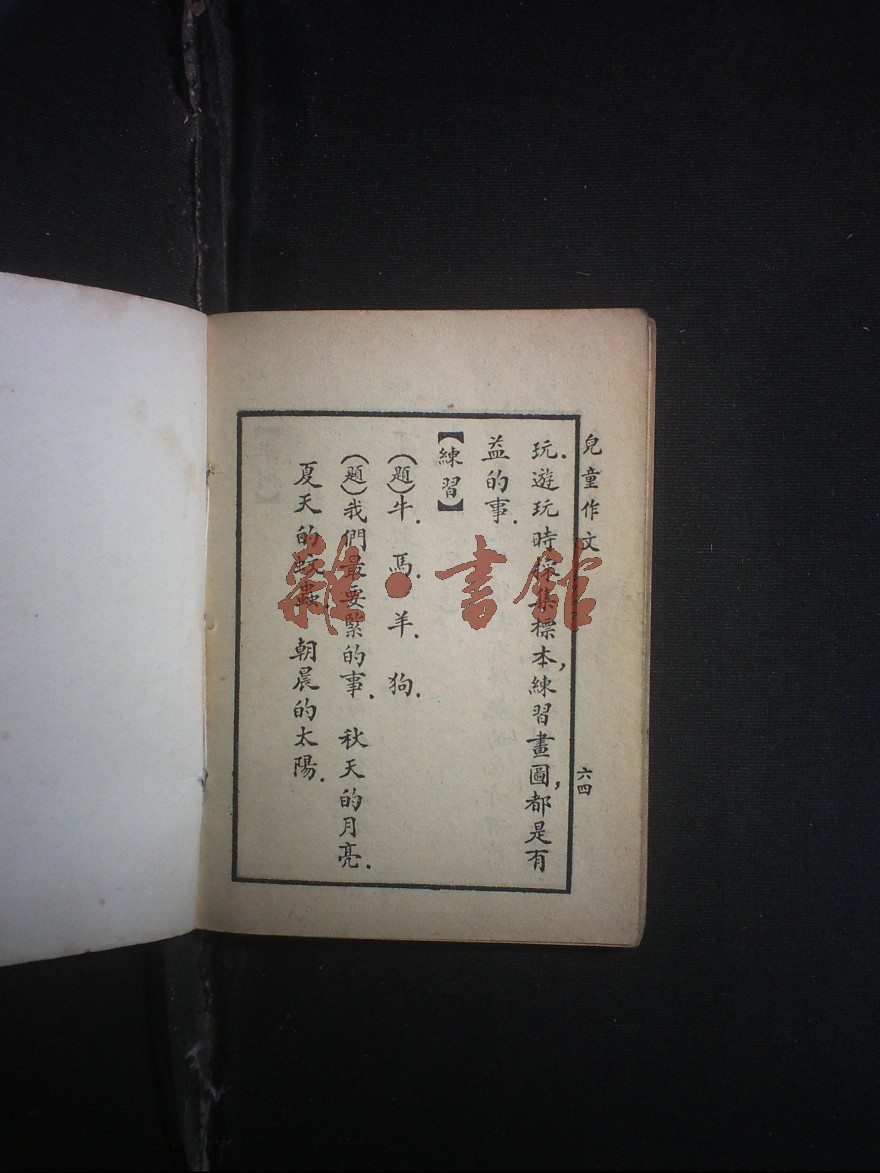 兒童作文
六四
玩.遊玩時採集標本,練習畫圖,都是有
益的事.
【練習】
(題)牛.　馬.　羊.　狗.
(題)我們最要緊的事.　秋天的月亮.
夏天的蚊蟲.　朝晨的太陽.
雜·書館